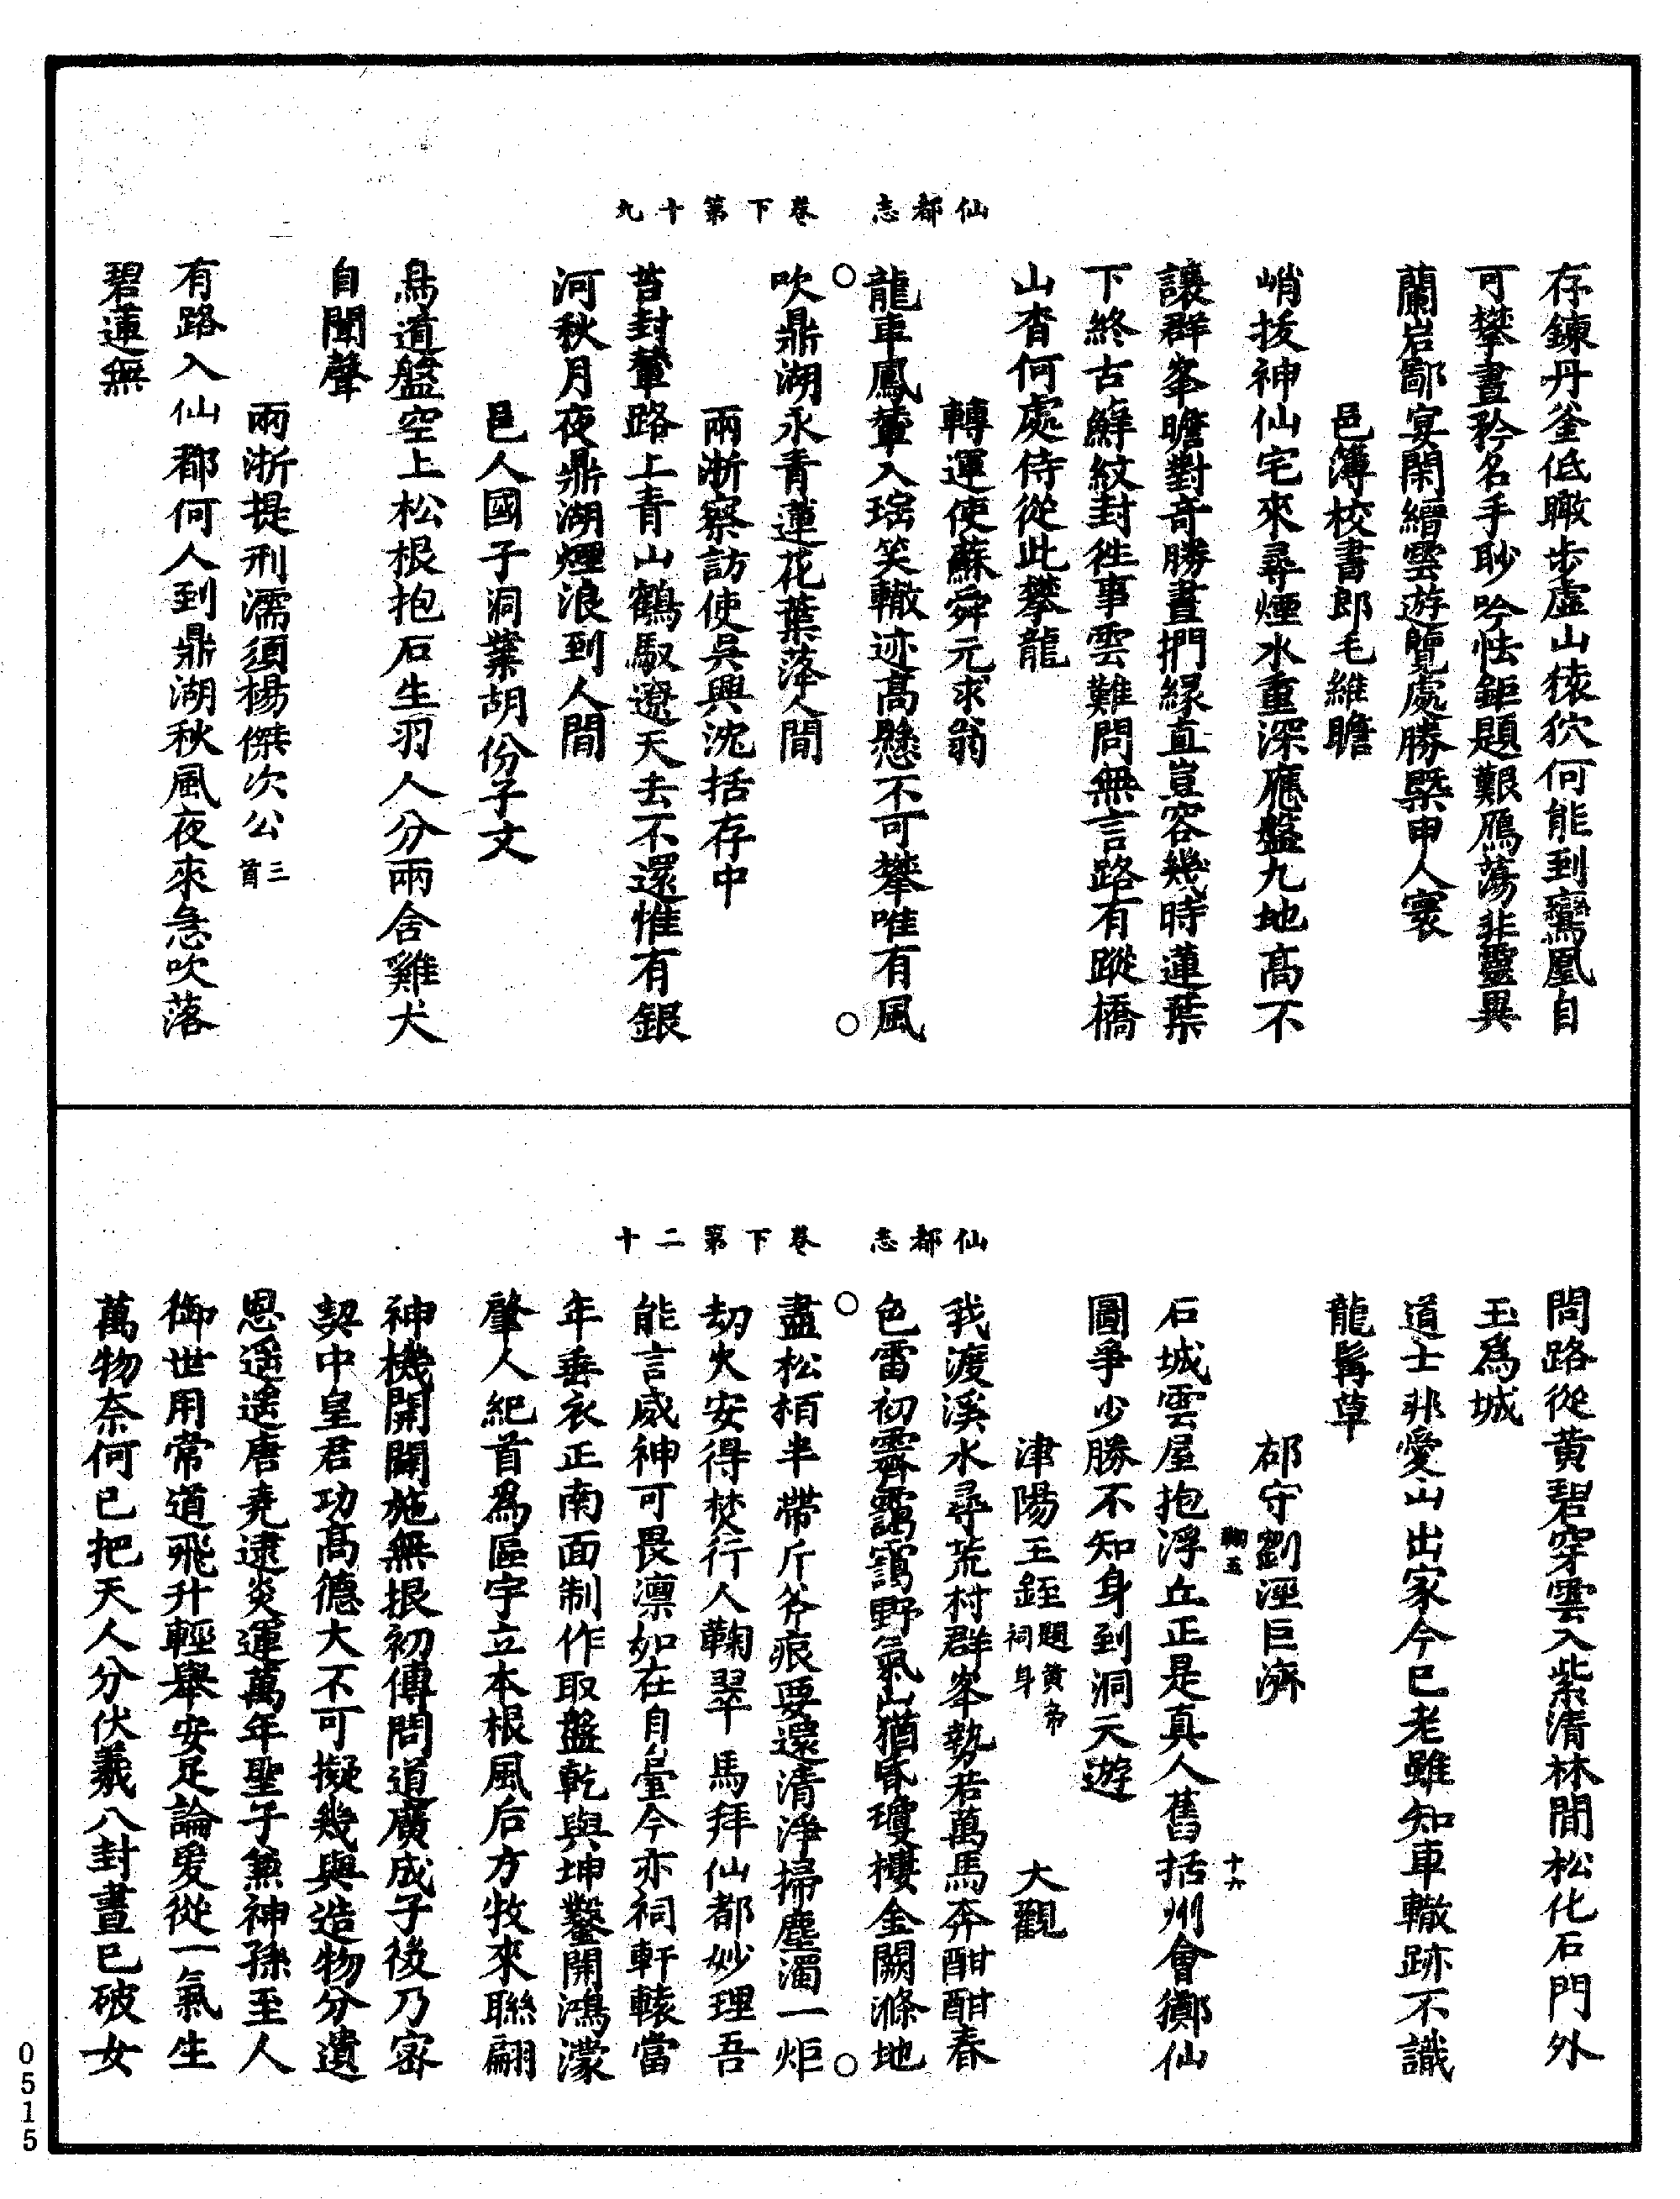 存鍊丹釜低瞰步虛山猿狖何能到鸞凰自
可攀畫矜名手眇吟怯鉅題艱鴈蕩非靈異
蘭岩鄙宴閑縉雲遊覽處勝槩甲人寰
邑簿校書郎毛維瞻
峭拔神仙宅來尋煙水重深應盤九地高不
讓群峯瞻對奇勝畫捫緣直豈容幾時蓮葉
下終古蘚紋封徃事雲難問無言路有蹤橋
山杳何處侍從此攀龍
轉運使蘇舜元求翁
龍車鳳輦入瑶笑轍迹高懸不可攀唯有風
仙都志　卷下第十九
吹鼎湖永青蓮花葉落人間
兩浙察訪使吳興沈括存中
苔封輦路上青山鶴馭遼天去不還惟有銀
河秋月夜鼎湖煙浪到人間
邑人國子洞業胡份子文
鳥道盤空上松根抱石生羽人分兩舍雞犬
自聞聲
兩浙提刑濡須楊傑次公三首
有路入仙都何人到鼎湖秋風夜來急吹落
碧蓮無
問路從黃碧穿雲入紫清林間松化石門外
玉爲城
道士非愛山出家今已老雖知車轍跡不識
龍髯草
郡守劉涇巨濟
石城雲屋抱浮丘正是真人舊括州會擲仙
圖爭少勝不知身到洞天遊
津陽王銍題黃帝祠身　大觀
我渡溪水尋荒村群峯勢若萬馬奔酣酣春
色雷初霽靄靄野氣山猶昏瓊樓金闕滌地
仙都志　卷下第二十
盡松栢半帶斤斧痕要還清淨掃塵濁一炬
刼火安得焚行人鞠翠馬拜仙都妙理吾
能言威神可畏凛如在自臺今亦祠軒轅當
年垂衣正南面制作取盤乾與坤鑿開鴻濛
肇人紀首爲區宇立本根風后方牧來聯翩
神機開闢施無垠初傳問道廣成子後乃密
契中皇君功高德大不可擬幾與造物分遺
恩遥遥唐堯逮炎運萬年聖子無神孫至人
御世用常道飛升輕舉安足論爰從一氣生
萬物柰何已把天人分伏羲八封畫已破女
0515